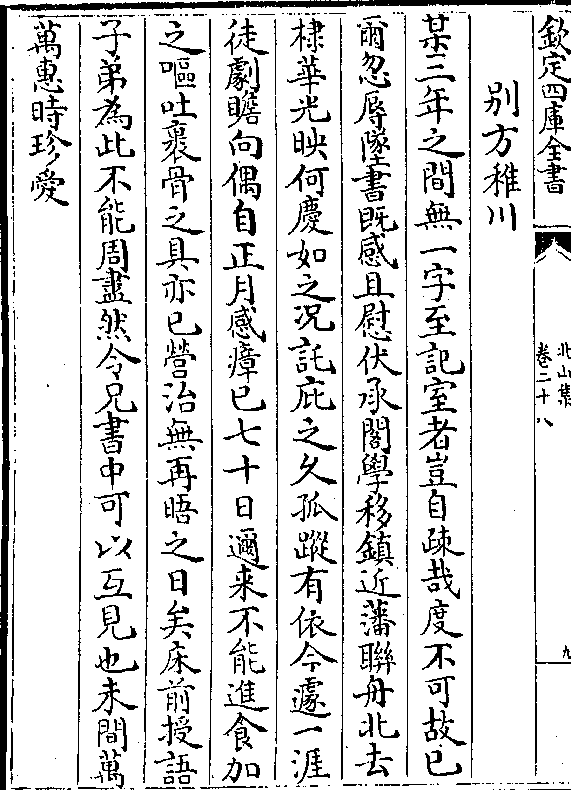 欽定四庫全書
北山集
卷二十八
九
别方稚川
某三年之間無一字至記室者豈自疎哉度不可故已
爾忽辱墜書既感且慰伏承閣學移鎮近藩聯舟北去
棣華光映何慶如之况託庇之久孤蹤有依今遽一涯
徒劇瞻向偶自正月感瘴已七十日邇来不能進食加
之嘔吐裹骨之具亦已營治無再晤之日矣床前授語
子弟為此不能周盡然令兄書中可以互見也未間萬
萬惠時珍愛